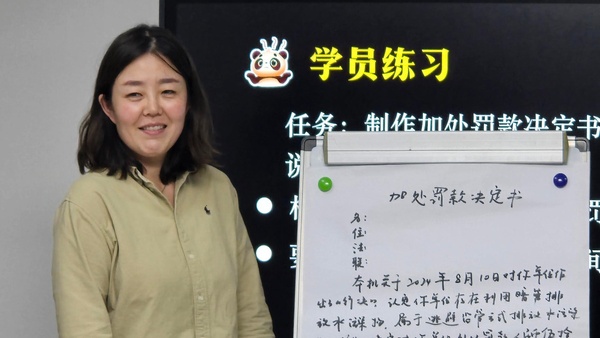 学员练习
任务：制作加处罚款决定书
说
罚
间
加处罚款决定书
名：
住：
法：
联：
本机关于2024年8月10日对你单位作
出的行决 认定你单位存在利用暗管排
放水污染物，属于逃避监管方式排放水污染